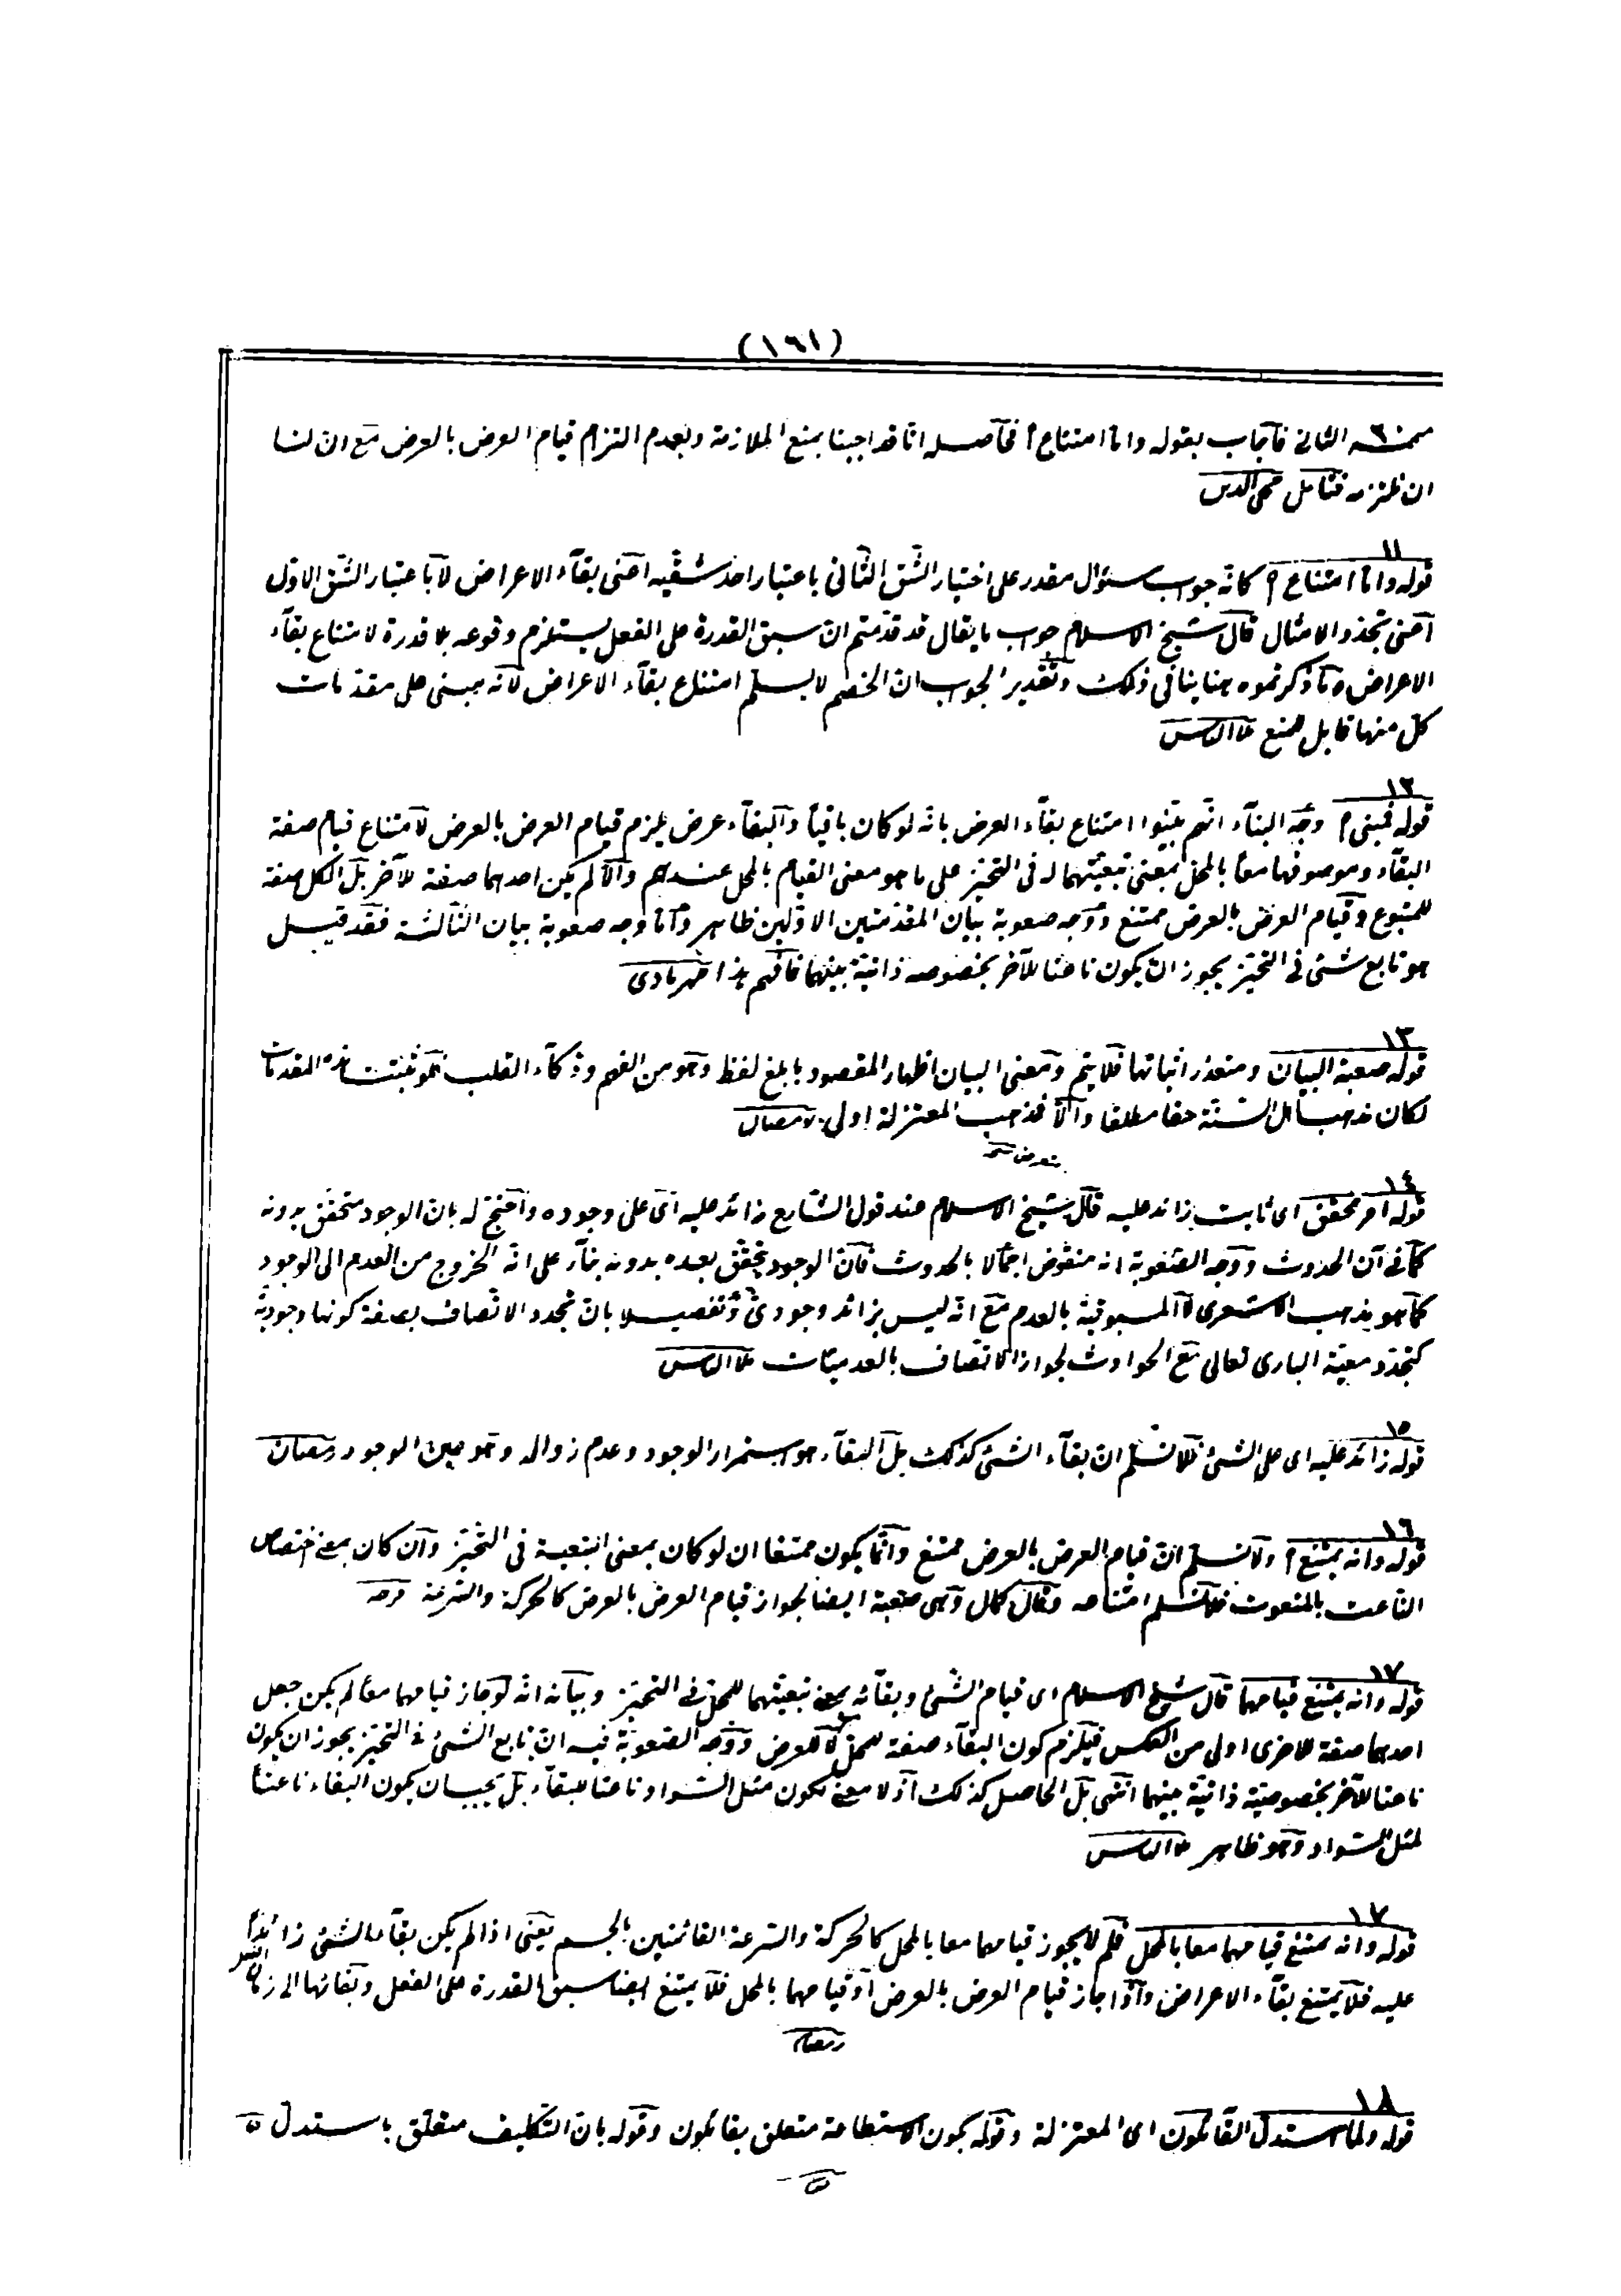 (١٦١)
الثانى فاجاب بقوله واما امتناع ا فحاصله انا قد اجبنا بمنع الملازمة وبعدم التزام قيام العرض بالعرض مع ان لنا
ان نلتزمه فتامل محى الدين
١١
قوله واما امتناع ا كانه جواب سئوال مقدر على اختيار الشق الثانى باعتبار احد شقيه اعنى بقآء الاعراض لا باعتبار الشق الاول
اعنى تجدد الامثال قال شيخ الاسلام جواب ما يقال قد قدمتم ان سبق القدرة على الفعل يستلزم وقوعه بلا قدرة لامتناع بقآء
الاعراض وما ذكرتموه هنا ينافى ذلك وتقدير الجواب ان الخصم لا يسلم امتناع بقآء الاعراض لانه مبنى على مقدمات
كل منها قابل للمنع
١٢
قوله فمبنى ا وجه البنآء انهم بينوا امتناع بقآء العرض بانه لو كان باقيا والبقآء عرض يلزم قيام العرض بالعرض لامتناع قيام صفة
البقآء وموصوفها معا بالمحل بمعنى تبعيتهما له فى التحيز على ما هو معنى القيام بالمحل عندهم والا لم يكن احدهما صفة للآخر بل الكل صفة
للمتبوع وقيام العرض بالعرض ممتنع ووجه صعوبة بيان المقدمتين الاوليين ظاهر واما وجه صعوبة بيان الثالثة فقد قيل
هو تابع شئ فى التحيز يجوز ان يكون ناعتا للآخر بخصوصه ذاتية بينهما فافهم هذا
١٣
قوله صعبة البيان ومتعذر اثباتها فلا يتم ومعنى البيان اظهار المقصود بابلغ لفظ وهو من الفهم وذكآء القلب فلو ثبتت هذه المقدمات
لكان مذهب اهل السنة حقا مطلقا والا فمذهب المعتزلة اولى رمضان
١٤
قوله امر محقق اى ثابت زائد عليه قال شيخ الاسلام عند قول الشارع زائد عليه اى على وجوده واحتج له بان الوجود متحقق بدونه
كما فى آن الحدوث ووجه الصعوبة انه منقوض اجمالا بالحدوث فان الوجود يتحقق بعده بدونه بنآء على انه الخروج من العدم الى الوجود
كما هو مذهب الاشعرى لا المسبوقية بالعدم مع انه ليس بزائد وجودى وتفصيلا بان تجدد الاتصاف بصفة كونها وجودية
كتجدد معية البارى تعالى مع الحوادث لجواز الاتصاف بالعدميات
١٥
قوله زائد عليه اى على الشئ فلا نسلم ان بقآء الشئ كذلك بل البقآء هو استمرار الوجود وعدم زواله وهو عين الوجود رمضان
١٦
قوله وانه يمتنع ا ولا نسلم ان قيام العرض بالعرض ممتنع وانما يكون ممتنعا ان لو كان بمعنى التبعية فى التحيز وان كان بمعنى اختصاص
الناعت بالمنعوت فلا نسلم امتناعه وقال كمال وهى صعبة ايضا لجواز قيام العرض بالعرض كالحركة والسرعة
١٧
قوله وانه يمتنع قيامهما قال شيخ الاسلام اى قيام الشئ وبقآئه بمعنى تبعيتهما للمحل فى التحيز وبيانه انه لو جاز قيامهما معا لم يكن جعل
احدهما صفة للاخرى اولى من العكس فيلزم كون البقآء صفة للمحل لا للعرض ووجه الصعوبة فيه ان تابع الشئ فى التحيز يجوز ان يكون
ناعتا للآخر بخصوصية ذاتية بينهما انتهى بل الحاصل كذلك اذ لا معنى لكون مثل السواد ناعتا للبقآء بل يجب ان يكون البقاء ناعتا
لمثل السواد وهو ظاهر
١٧
قوله وانه يمتنع قيامهما معا بالمحل فلم لا يجوز قيامهما معا بالمحل كالحركة والسرعة القائمتين بالجسم يعنى اذا لم يكن بقآء الشئ زائدا
عليه فلا يمتنع بقآء الاعراض واذا جاز قيام العرض بالعرض او قيامهما بالمحل فلا يمتنع ايضا سبق القدرة على الفعل وبقائها الى زمان الفعل
رمضان
١٨
قوله ولما استدل القائلون اى المعتزلة وقوله بكون الاستطاعة متعلق بقائلون وقوله بان التكليف متعلق باستدل